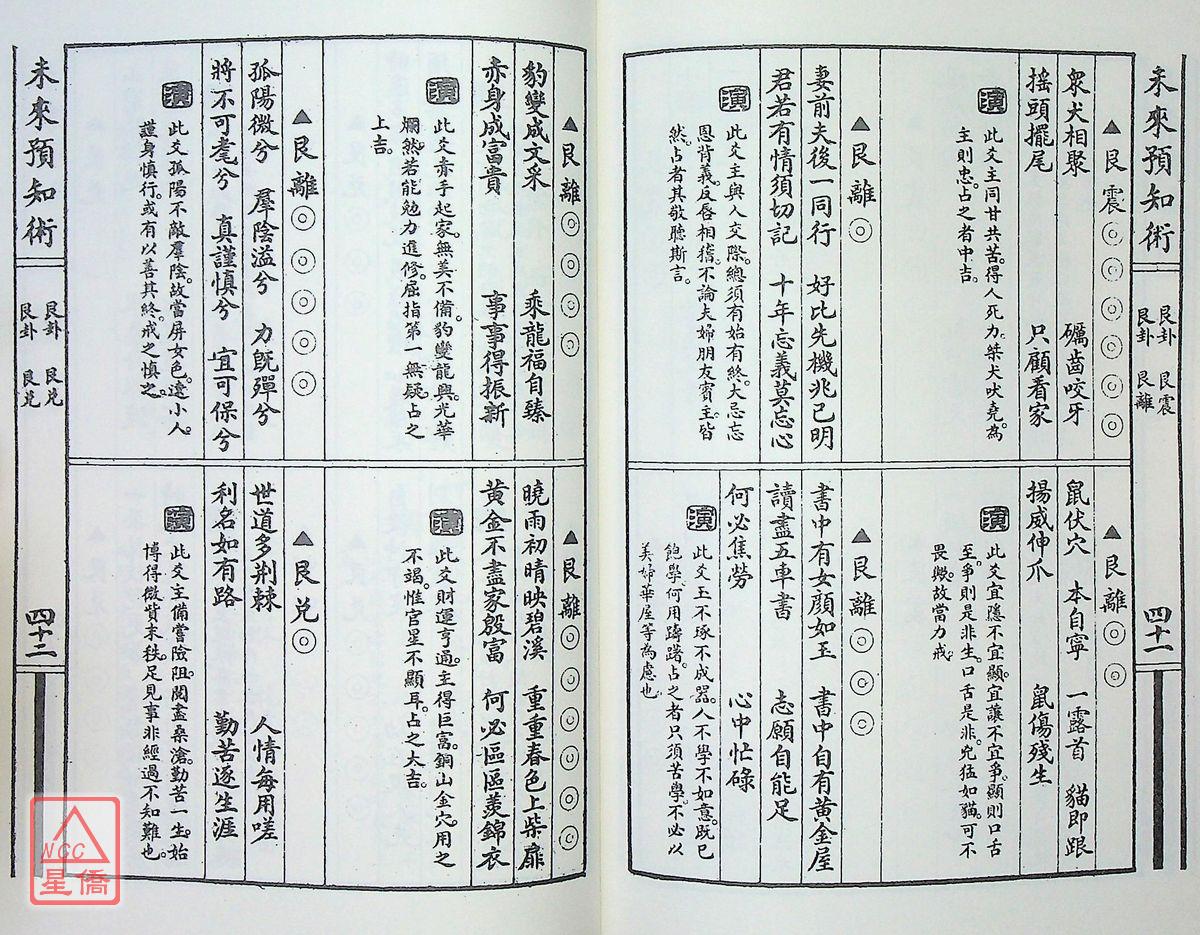 未來預知術
艮卦 艮震
艮卦 艮離
四十一
▲艮震◎◎◎◎◎◎
眾犬相聚 礪齒咬牙
搖頭擺尾 只顧看家
演
此爻主同甘共苦。得人死力。桀犬吠堯。為
主則忠。占之者中吉。
▲艮離◎
妻前夫後一同行 好比先機兆已明
君若有情須切記 十年忘義莫忘心
演
此爻主與人交際。總須有始有終。大忌忘
恩背義。反唇相稽。不論夫婦朋友賓主。皆
然。占者其敬聽斯言。
▲艮離◎◎
鼠伏穴 本自寧 一露首 貓即跟
揚威伸爪 鼠傷殘生
演
此爻宜隱不宜顯。宜讓不宜爭。顯則口舌
至。爭則是非生。口舌是非。兇猛如貓。可不
畏歟。故當力戒。
▲艮離◎◎◎
書中有女顏如玉 書中自有黃金屋
讀盡五車書 志願自能足
何必焦勞 心中忙碌
演
此爻玉不琢不成器。人不學不如意。既已
飽學。何用躊躇。占之者只須苦學。不必以
美婦華屋等為慮也。
▲艮離◎◎◎◎
豹變成文采 乘龍福自臻
赤身成富貴 事事得振新
演
此爻赤手起家。無美不備。豹變龍興。光華
爛然。若能勉力進修。屈指第一無疑。占之
上吉。
▲艮離◎◎◎◎◎
孤陽微兮 羣陰溢兮 力既殫兮
將不可耄兮 真謹慎兮 宜可保兮
演
此爻孤陽不敵羣陰。故當屏女色。遠小人。
謹身慎行。或有以善其終。戒之慎之。
▲艮離◎◎◎◎◎◎
曉雨初晴映碧溪 重重春色上柴扉
黃金不盡家殷富 何必區區羨錦衣
演
此爻財運亨通。主得巨富。銅山金穴。用之
不竭。惟官星不顯耳。占之大吉。
▲艮兌◎
世道多荆棘 人情每用嗟
利名如有路 勤苦逐生涯
演
此爻主備嘗險阻。閱盡桑滄。勤苦一生。始
博得微貲末秩。足見事非經過不知難也。
未來預知術
艮卦 艮兌
艮卦 艮兌
四十二
NCC
星僑